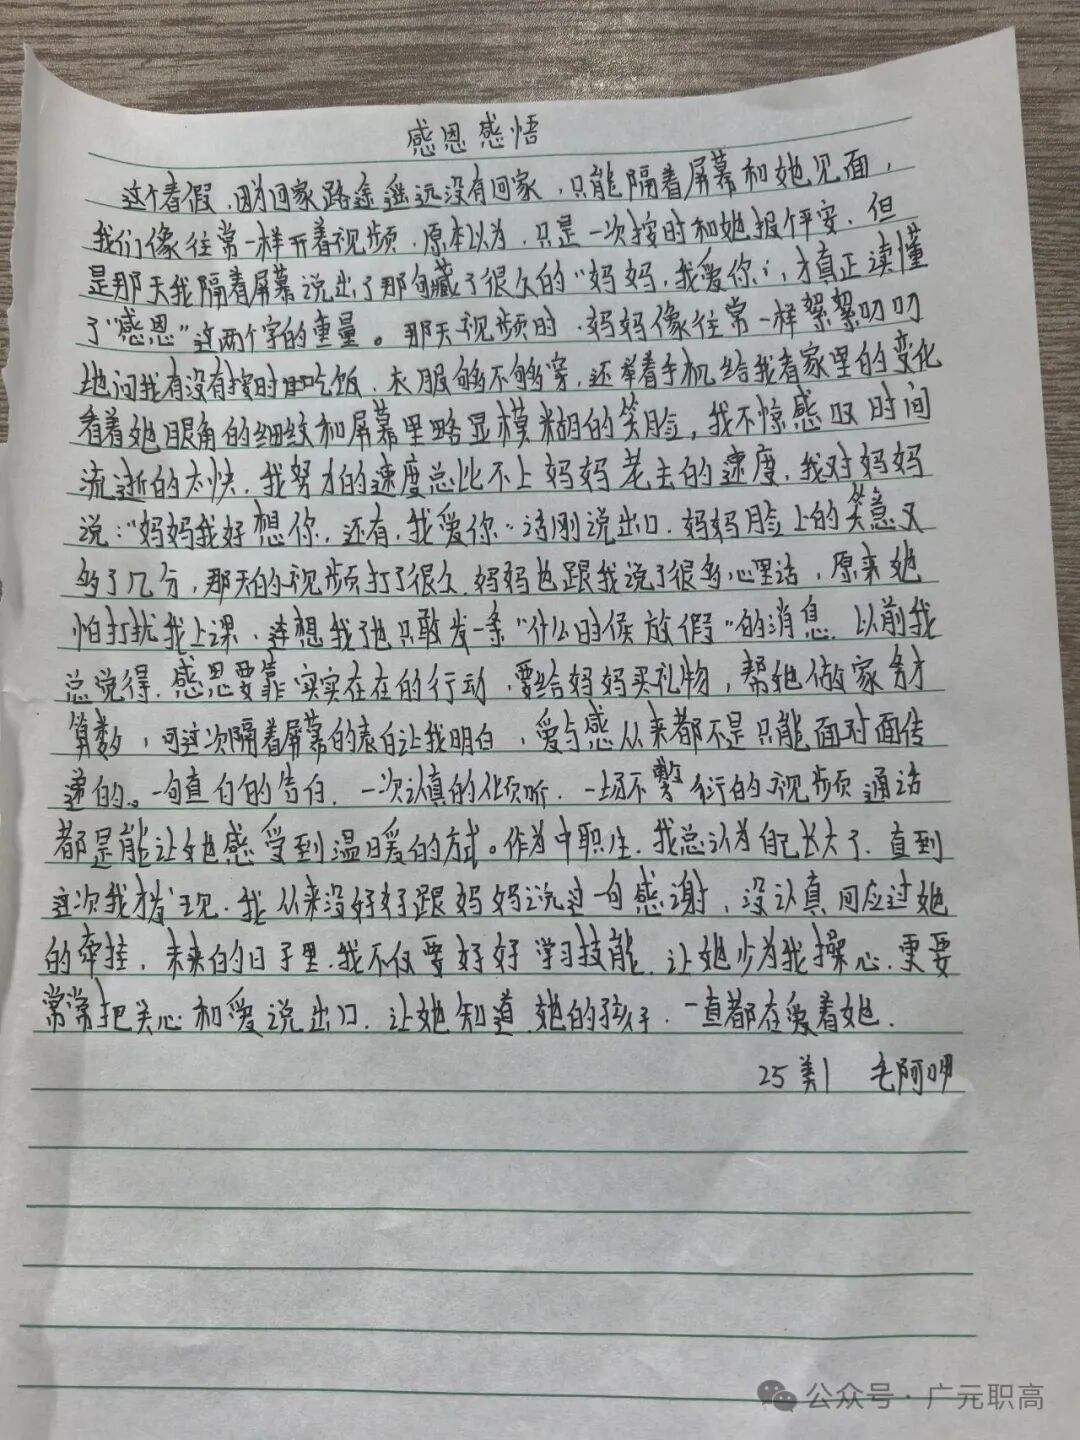 感恩感悟
这个春假，因为回家路途遥远没有回家，只能隔着屏幕和她见面，
我们像往常一样开着视频，原本以为，只是一次按时和她报个平安，但
是那天我隔着屏幕说出了那句藏了很久的“妈妈，我爱你”，才真正读懂
了“感恩”这两个字的重量。那天视频时，妈妈像往常一样絮絮叨叨
地问我有没有按时吃饭，衣服够不够穿，还举着手机给我看家里的变化
看着她眼角的细纹和屏幕里略显模糊的笑脸，我不惊感叹时间
流逝的太快，我努力的速度总比不上妈妈老去的速度，我对妈妈
说：“妈妈我好想你，还有，我爱你”话刚说出口，妈妈脸上的笑意又
多了几分，那天的视频打了很久，妈妈也跟我说了很多心里话，原来她
怕打扰我上课，连想我了也只敢发一条“什么时候放假”的消息，以前我
总觉得，感恩要靠实实在在的行动，要给妈妈买礼物，帮她做家务才
算数，可这次隔着屏幕的表白让我明白，爱与感从来都不是只能面对面传
递的。一句直白的告白，一次认真的倾听，一场不敷衍的视频通话
都是能让她感受到温暖的方式。作为中职生，我总认为自己长大了，直到
这次我才发现，我从来没好好跟妈妈说过一句感谢，没认真回应过她
的牵挂，未来的日子里，我不仅要好好学习技能，让她少为我操心，更要
常常把关心和爱说出口，让她知道，她的孩子，一直都在爱着她．
25美1 毛阿
公众号·广元职高